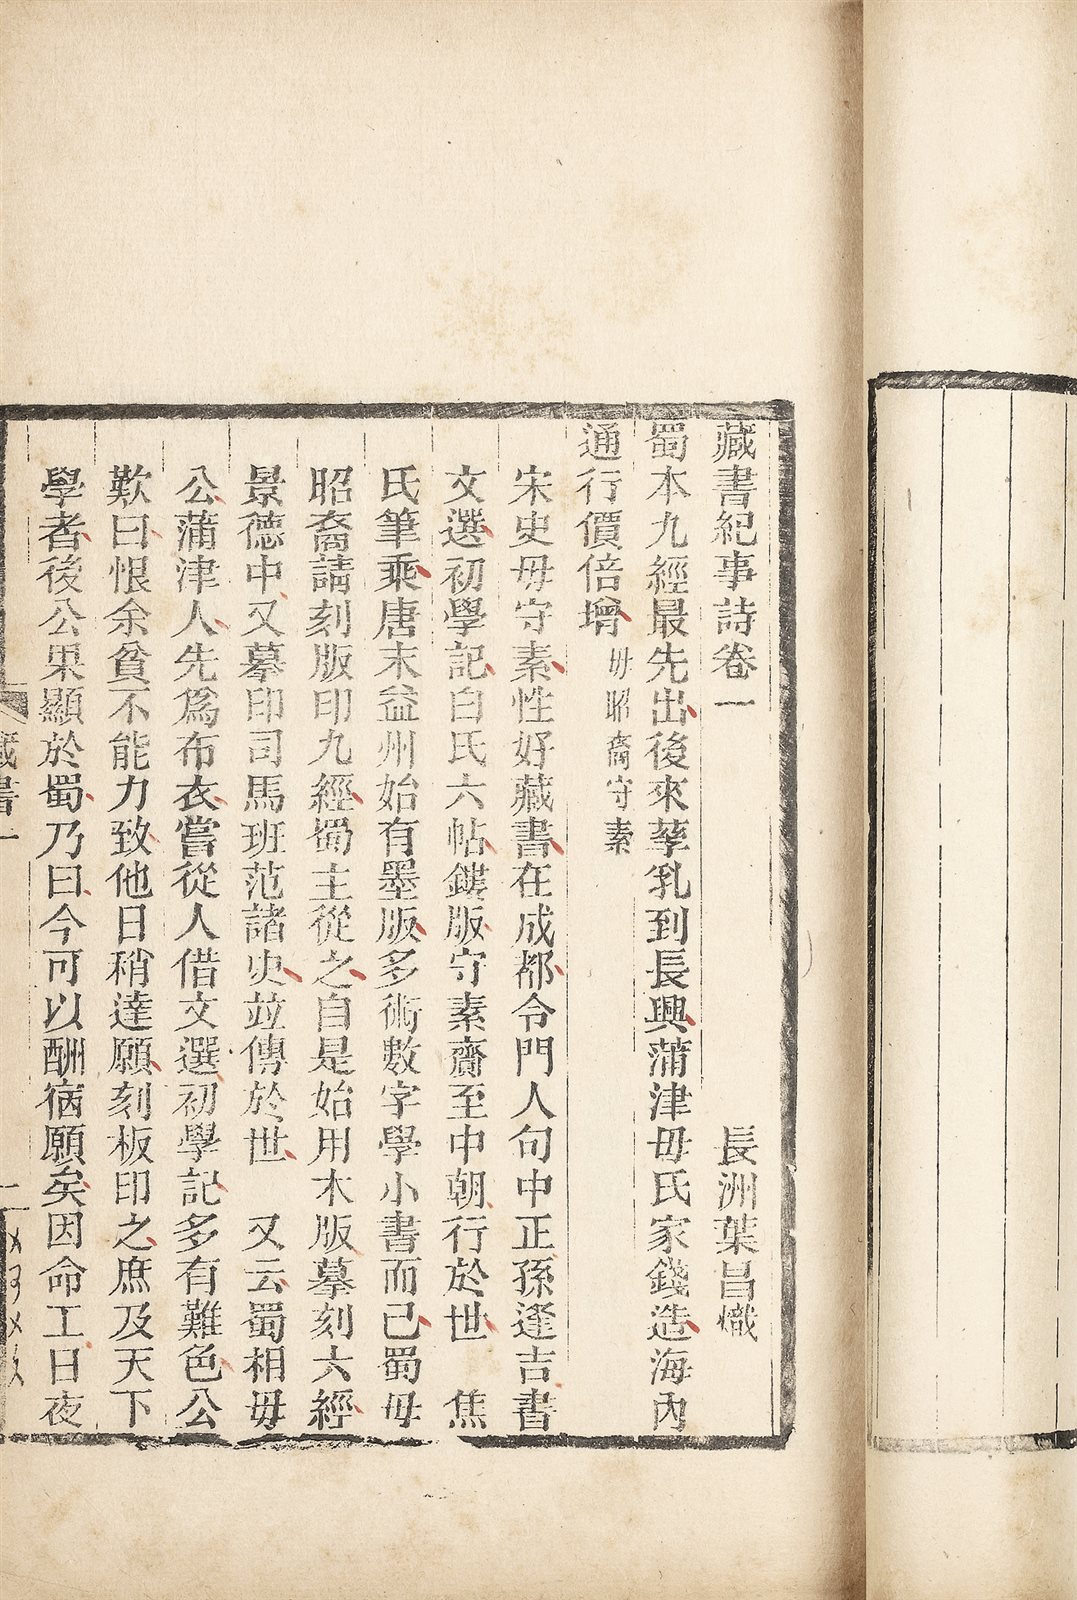 藏書紀事詩卷一
長洲葉昌熾
蜀本九經最先出後來孳乳到長興蒲津毋氏家錢造海內
通行價倍增 毋昭裔守素
宋史毋守素性好藏書在成都令門人句中正孫逢吉書
文選初學記白氏六帖鏤版守素齎至中朝行於世 焦
氏筆乘唐末益州始有墨版多術數字學小書而已蜀毋
昭裔請刻版印九經蜀主從之自是始用木版摹刻六經
景德中又摹印司馬班范諸史竝傳於世 又云蜀相毋
公蒲津人先爲布衣嘗從人借文選初學記多有難色公
歎曰恨余貧不能力致他日稍達願刻板印之庶及天下
學者後公果顯於蜀乃曰今可以酬宿願矣因命工日夜
藏書一
一